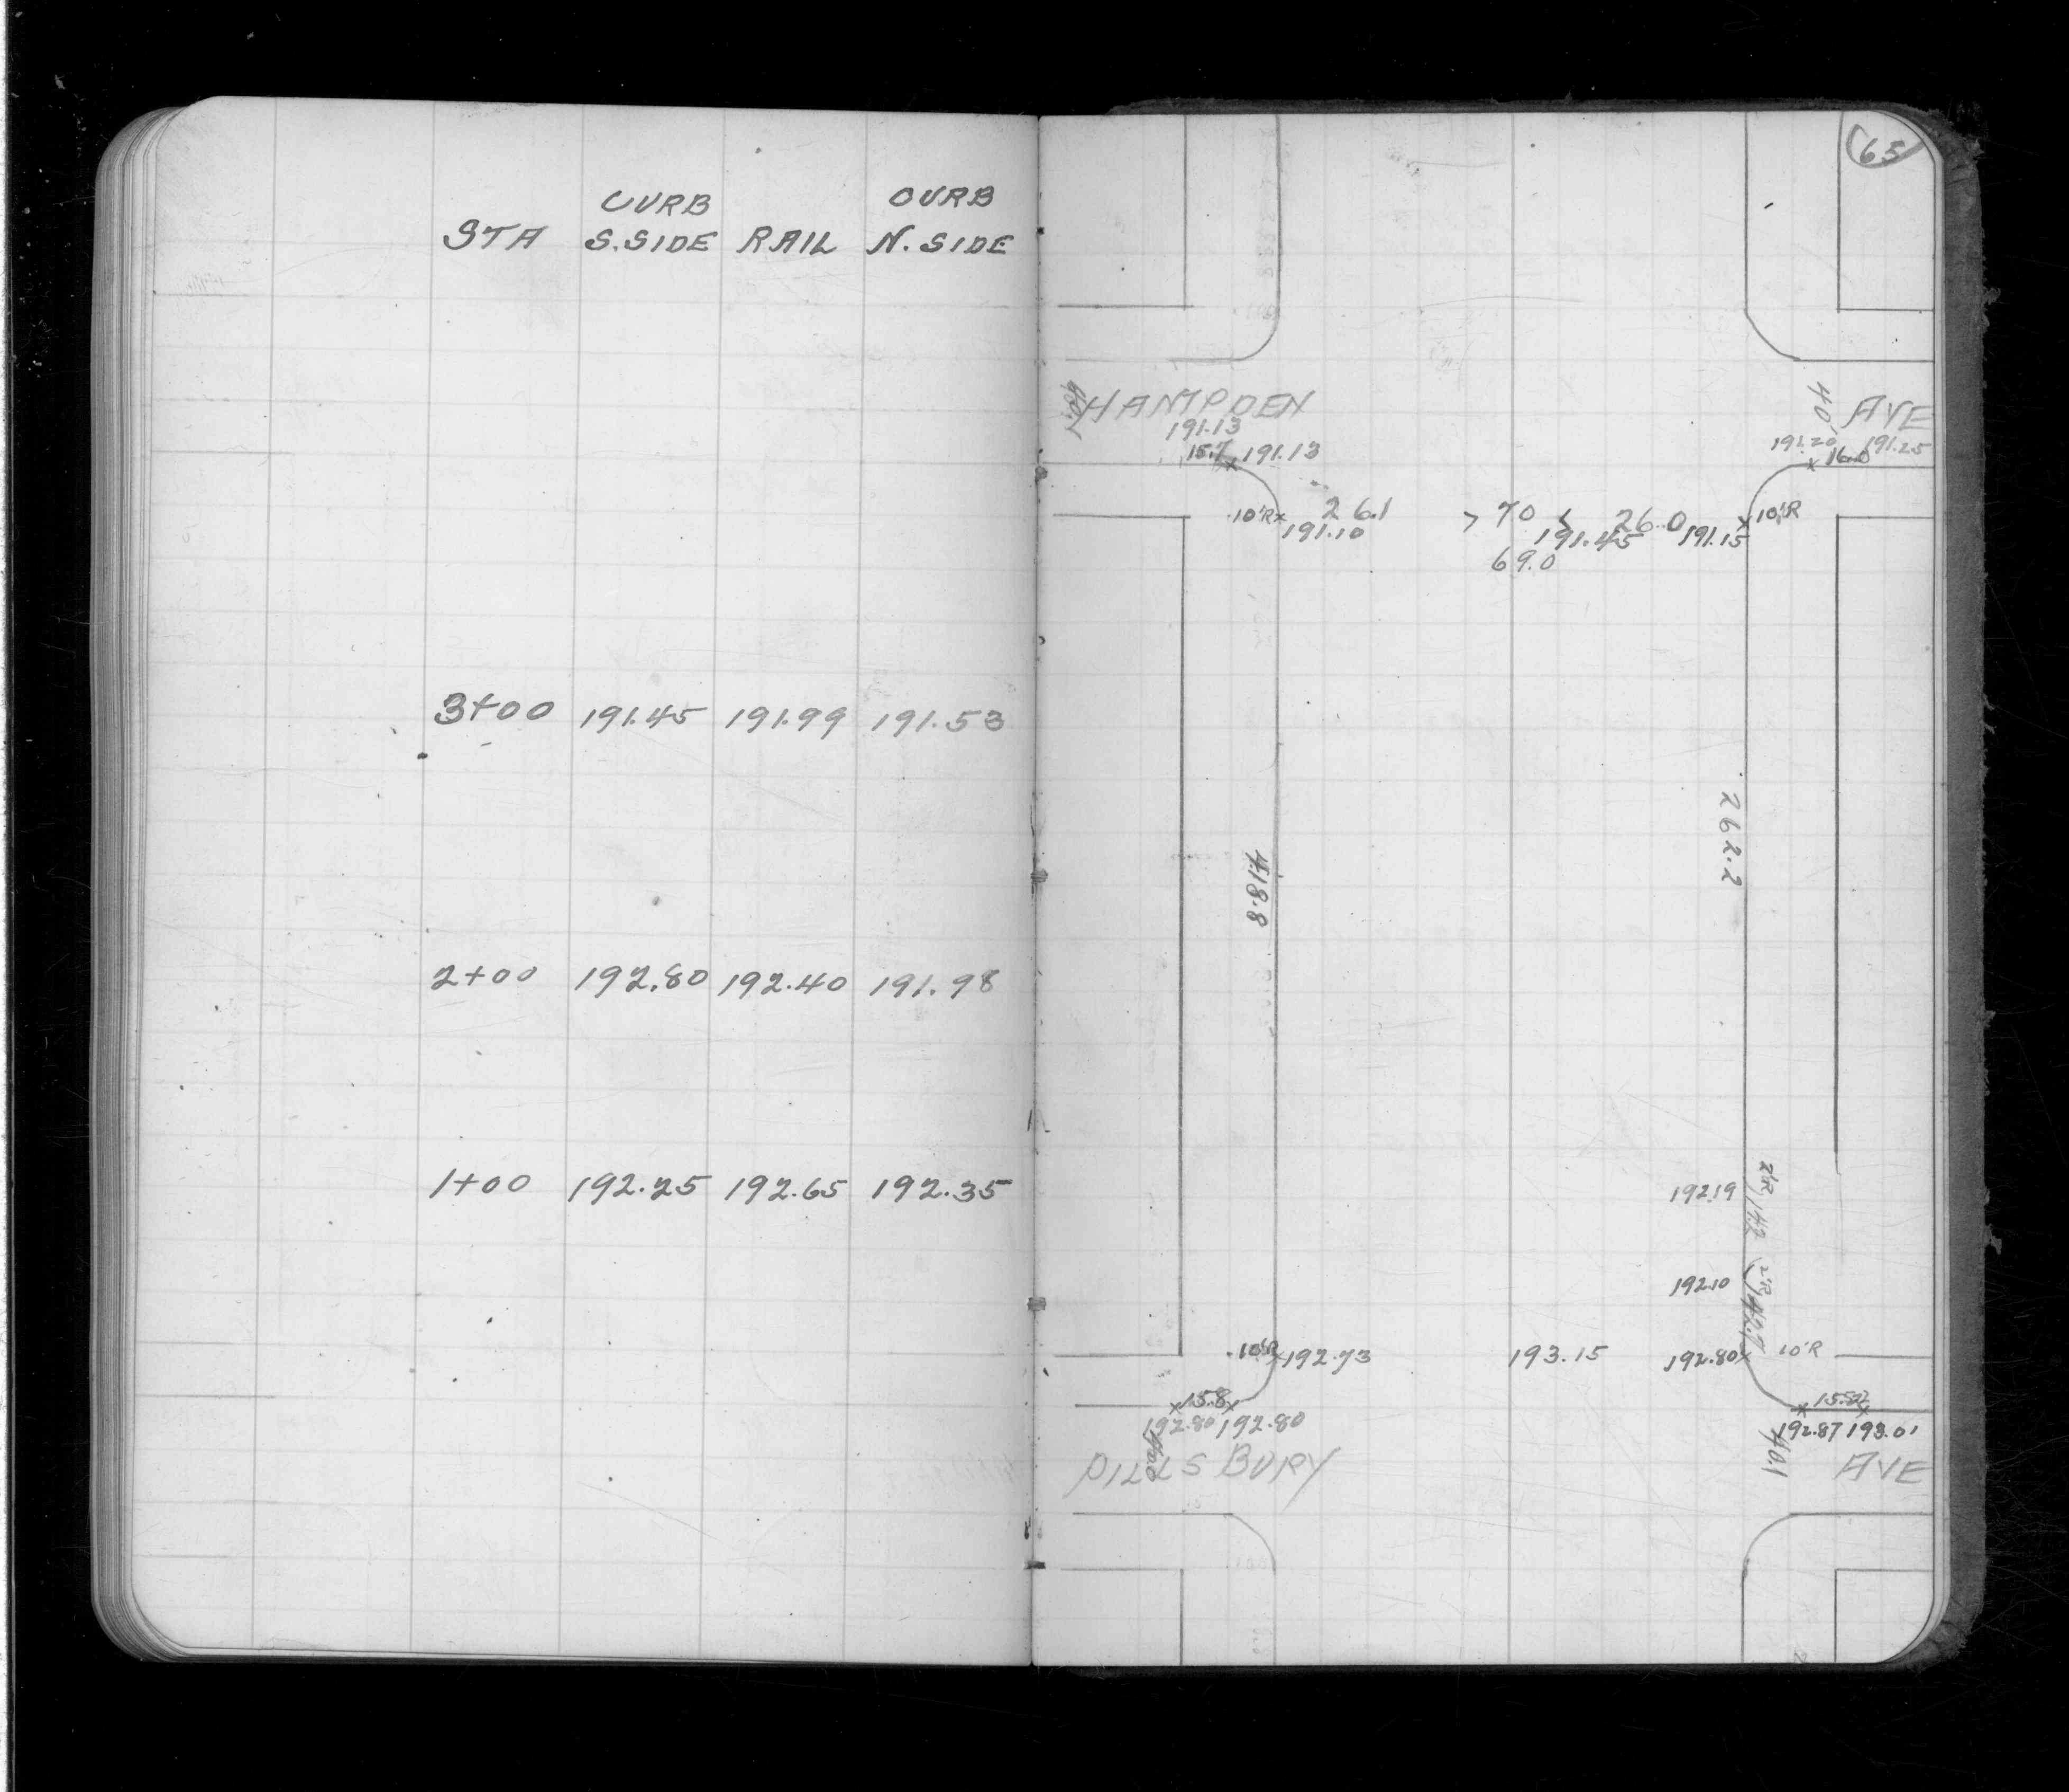 CURB CURB
STA S.SIDE RAIL N. SIDE
3+00 191.45 191.99 191.53
2+00 192.80 192.40 191.98
1+00 192.25 192.65 192.35
65
HAMPDEN 40' AVE
191.13
15.7 191.13
191.20 16.0 191.25
10'R 26.1 > 70 < 26.0 10'R
191.10 191.45 191.15
69.0
262.2
418.8
2'R
192.19
14.2
2'R
192.10
10'R 192.73 193.15 192.80 10'R
15.8
192.80 192.80
192.87 193.01
40.1
PILLSBURY AVE